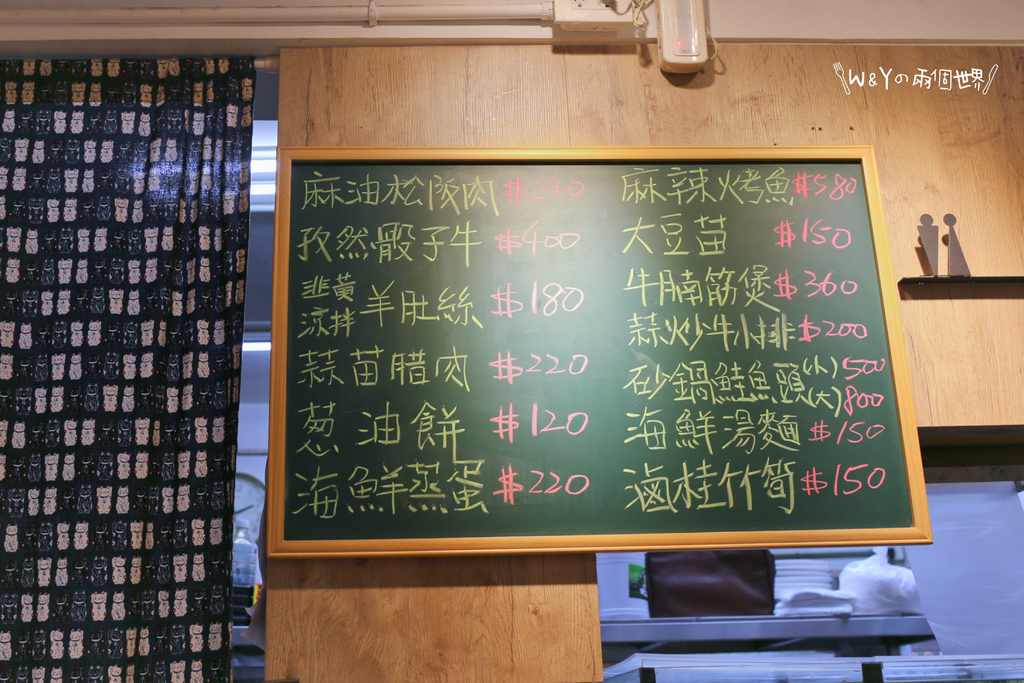 W&Yの兩個世界
麻油松阪肉 $240
孜然骰子牛 $400
韭黃涼拌羊肚絲 $180
蒜苗腊肉 $220
葱油餅 $120
海鮮蒸蛋 $220
麻辣烤魚 $580
大豆苗 $150
牛腩筋煲 $360
蒜炒牛小排 $200
砂鍋鮭魚頭(小) 500
(大) 800
海鮮湯麵 $150
滷桂竹筍 $150